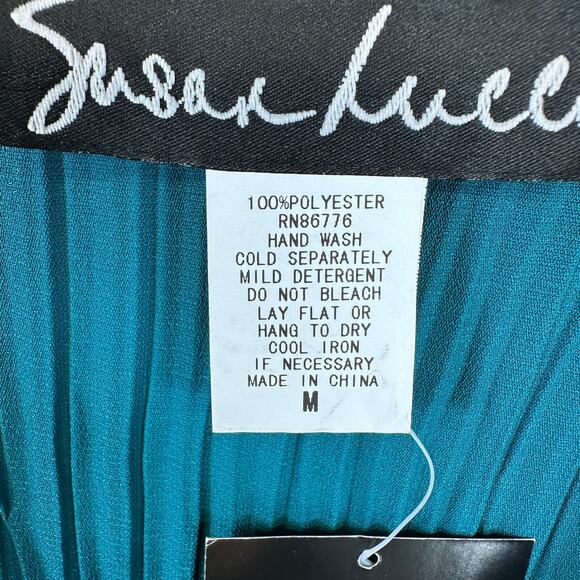 Susan Lucc
100%POLYESTER
RN86776
HAND WASH
COLD SEPARATELY
MILD DETERGENT
DO NOT BLEACH
LAY FLAT OR
HANG TO DRY
COOL IRON
IF NECESSARY
MADE IN CHINA
M